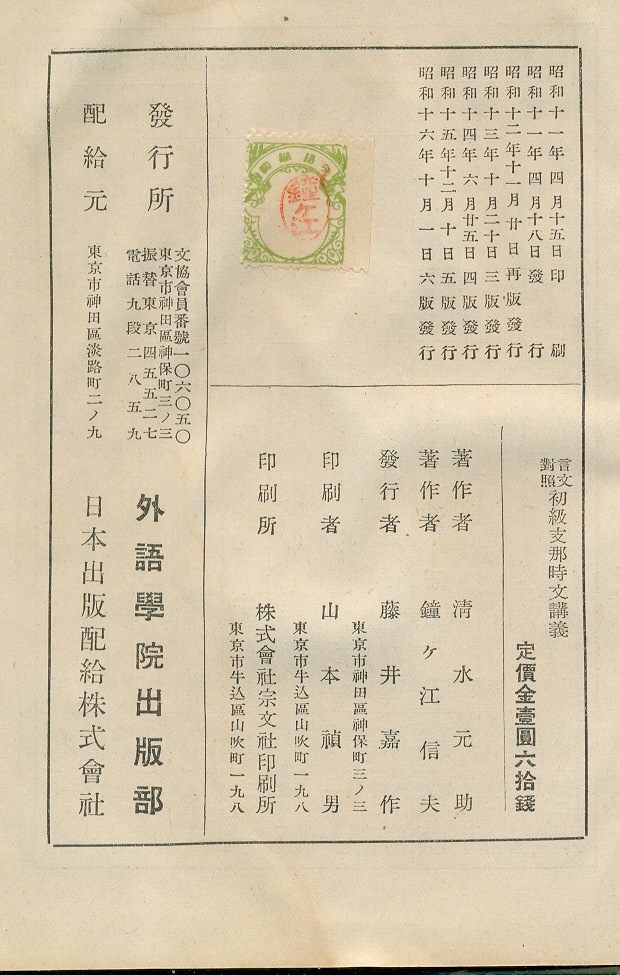 昭和十一年四月十五日印刷
昭和十一年四月十八日發行
昭和十二年十一月廿日再版發行
昭和十三年十月二十日三版發行
昭和十四年六月廿五日四版發行
昭和十五年十二月十日五版發行
昭和十六年十月一日六版發行
鐘ヶ江
言文對照初級支那時文講義
定價金壹圓六拾錢
著作者 淸水元助
著作者 鐘ヶ江信夫
發行者 藤井嘉作
東京市神田區神保町三ノ三
印刷者 山本禎男
東京市牛込區山吹町一九八
印刷所 株式會社宗文社印刷所
東京市牛込區山吹町一九八
發行所 外語學院出版部
文協會員番號一〇六〇五〇
東京市神田區神保町三ノ三
振替東京四五五二七
電話九段二八五九
配給元 東京市神田區淡路町二ノ九 日本出版配給株式會社